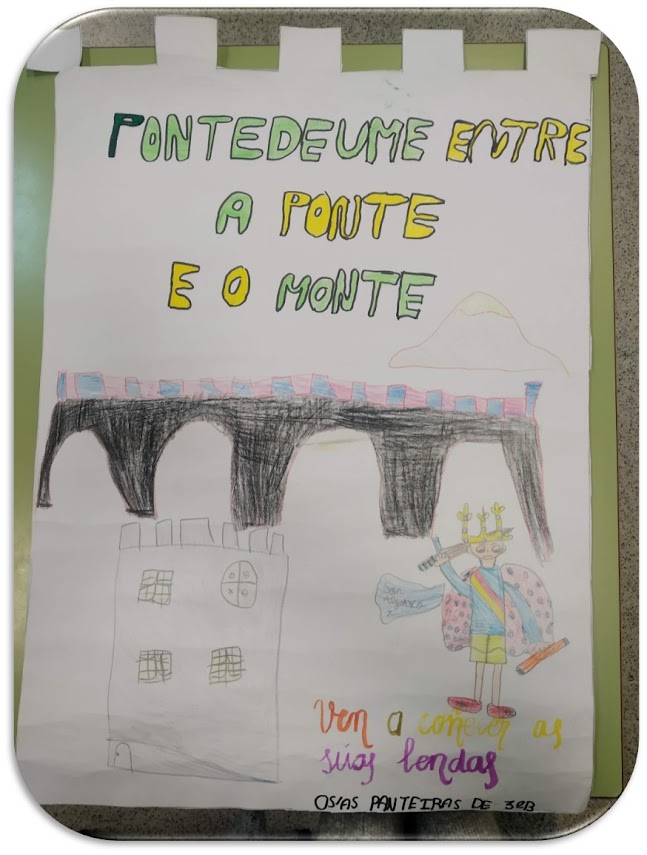 PONTEDEUME ENTRE
A PONTE
E O MONTE
Ven a coñecer as
súas lendas
OS/AS PANTEIRAS DE 3ºB